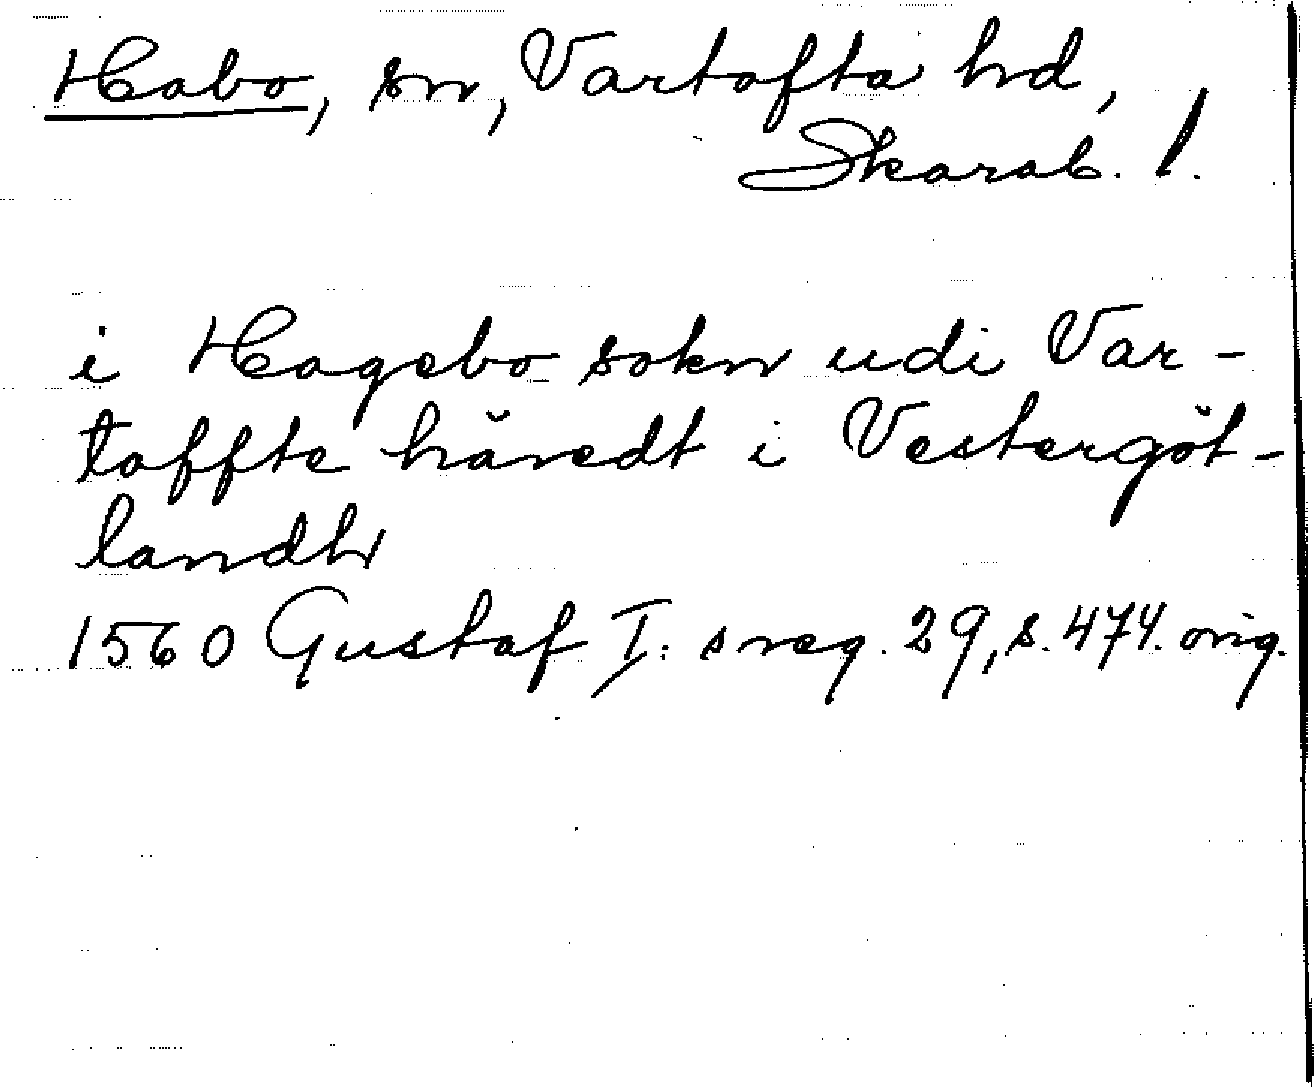 Habo, sn, Vartofta hd,
Skarab. l.
i Hagebo sokn udi Var-
toffte häredt i Vestergöt-
landh
1560 Gustaf I:s reg. 29, s. 474. orig.